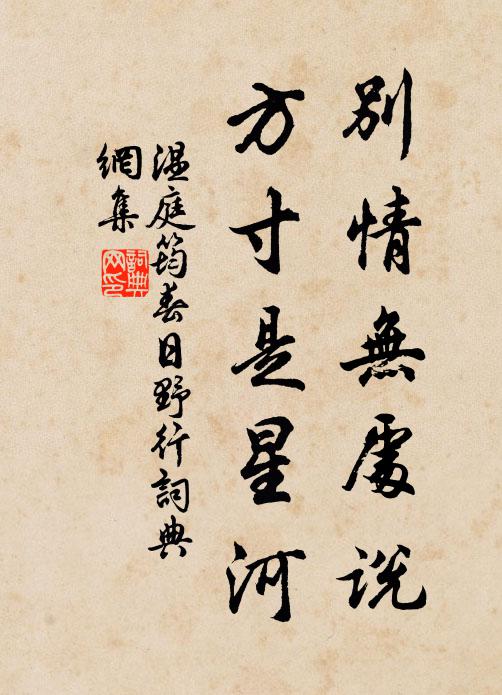 別情無處說
方寸是星河
溫庭筠春日野行詞典
網集
詞典
网印